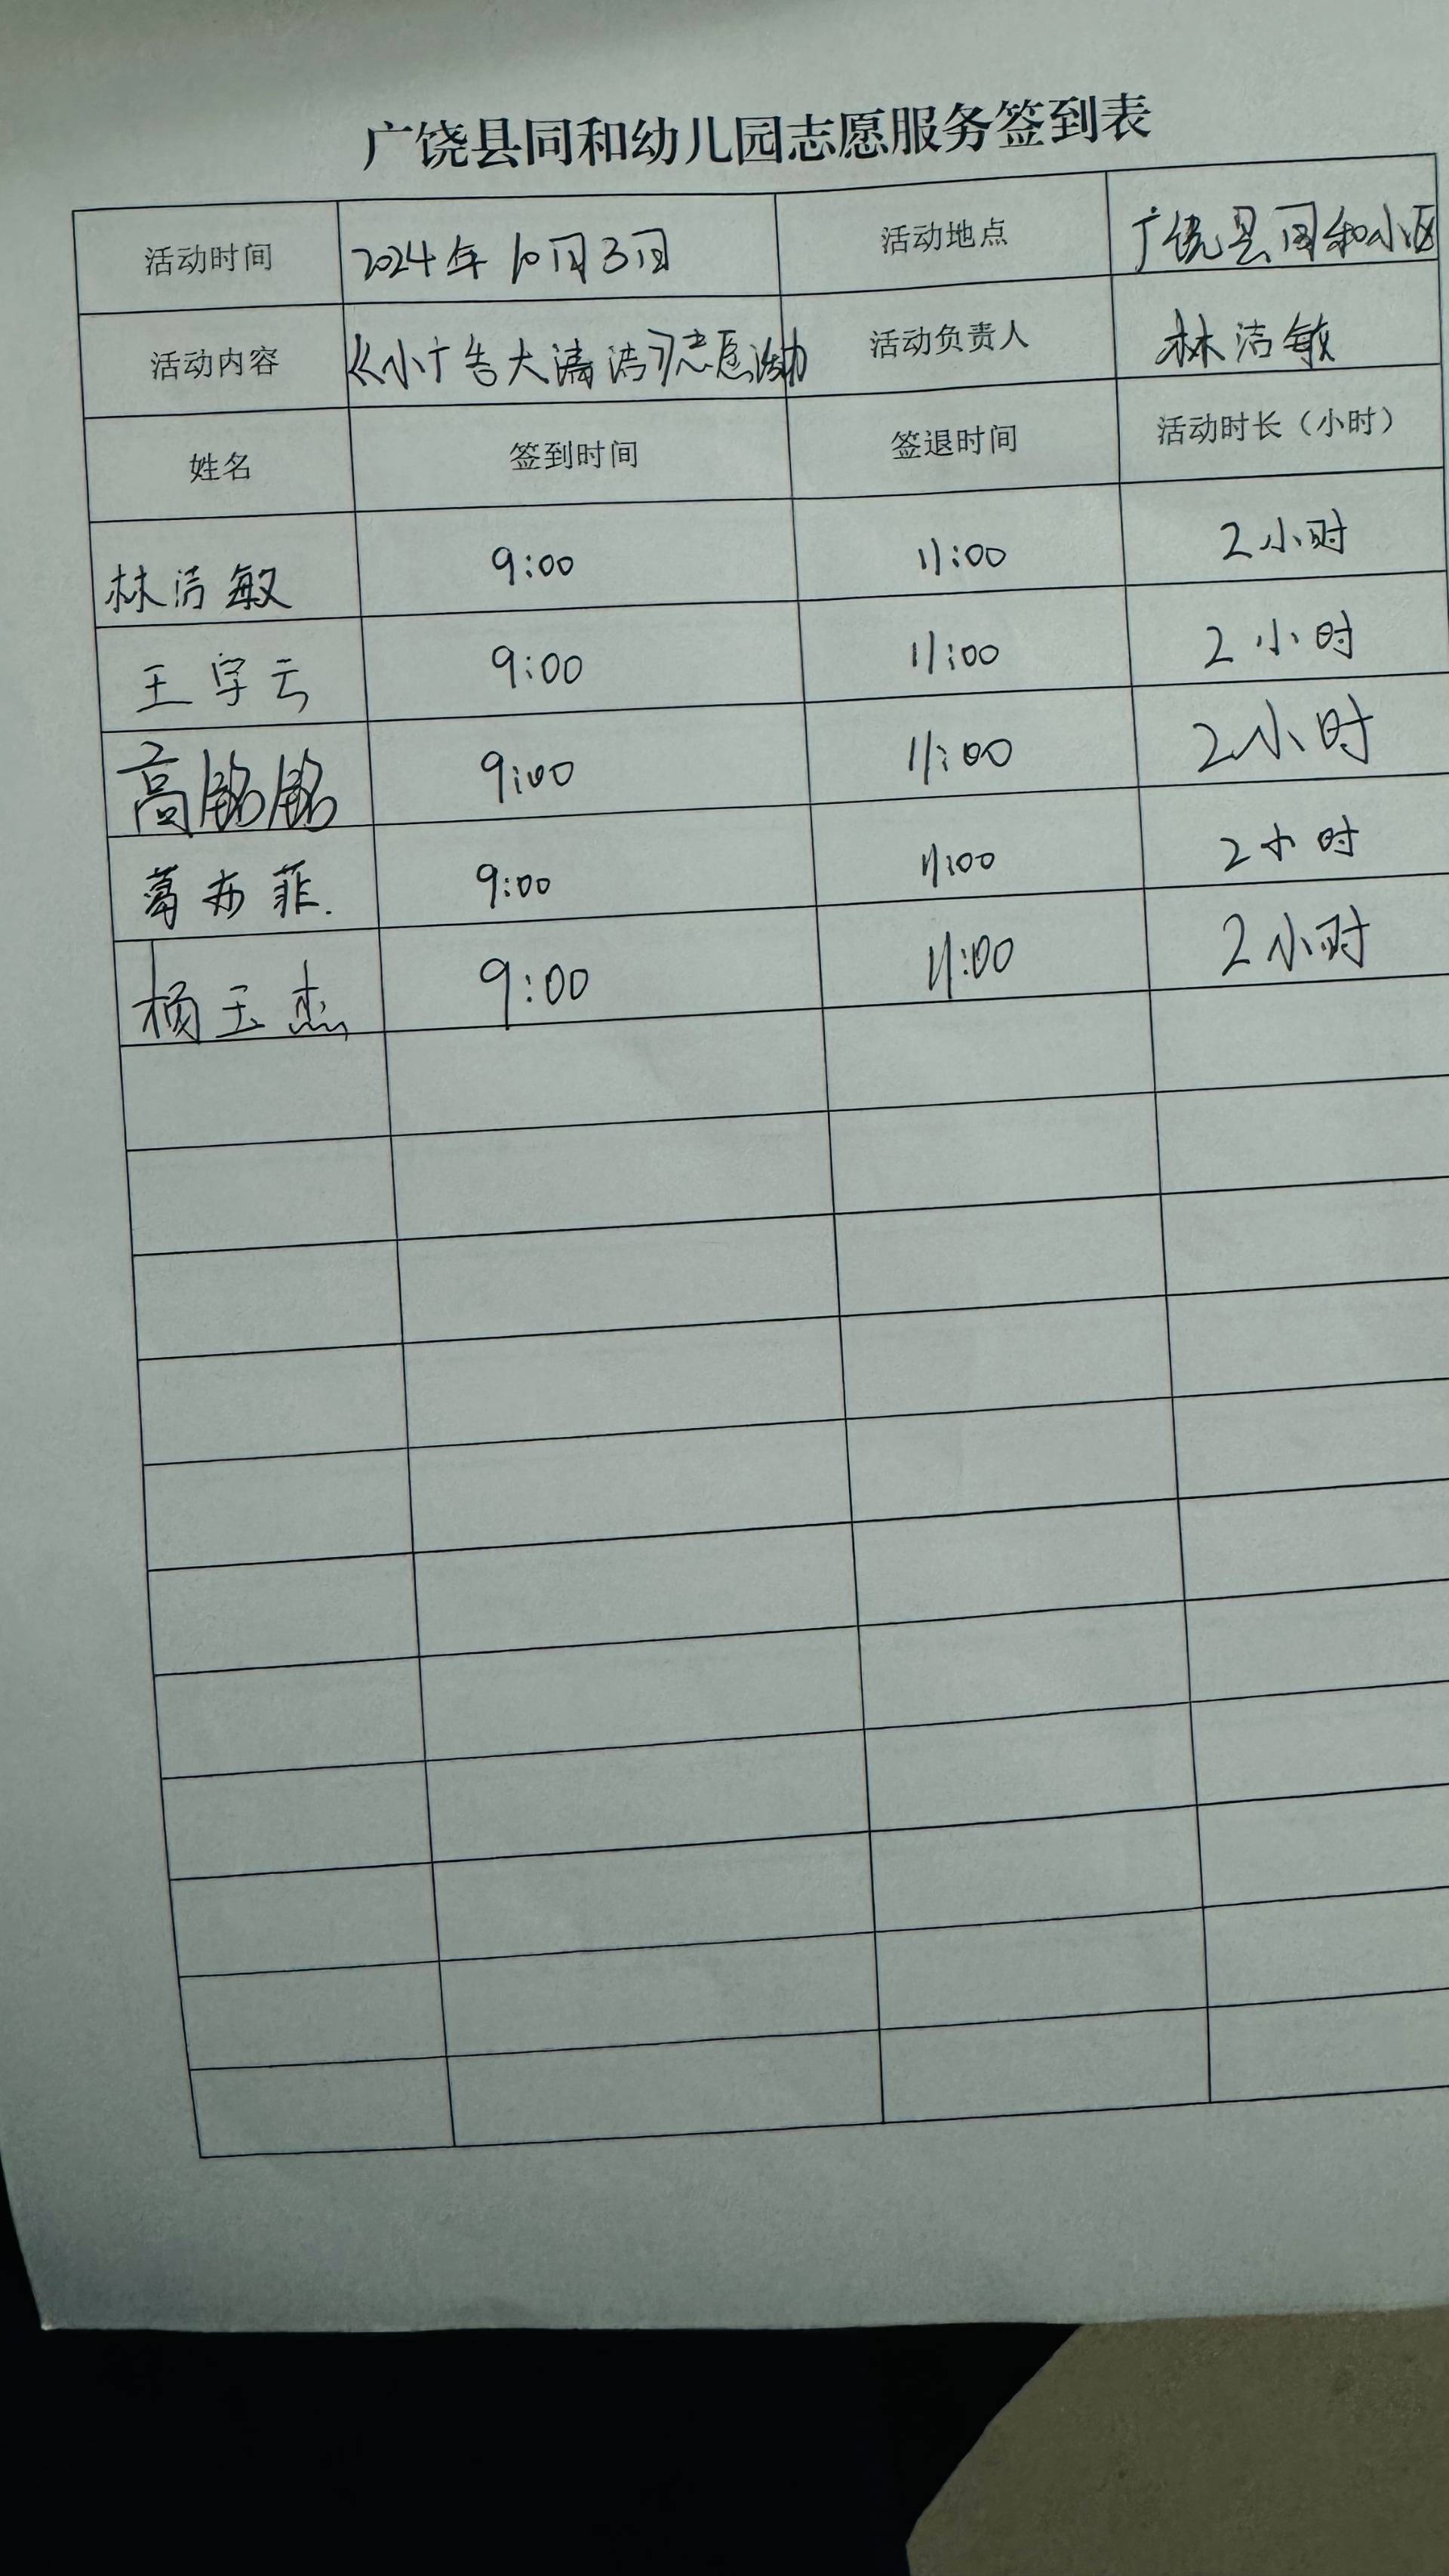 广饶县同和幼儿园志愿服务签到表
活动时间 2024年10月3日 活动地点 广饶县同和小区
活动内容 《小广告大清洁》志愿活动 活动负责人 林洁敏
姓名 签到时间 签退时间 活动时长（小时）
林洁敏 9:00 11:00 2小时
王字云 9:00 11:00 2小时
高铭铭 9:00 11:00 2小时
葛亦菲. 9:00 11:00 2小时
杨玉杰 9:00 11:00 2小时